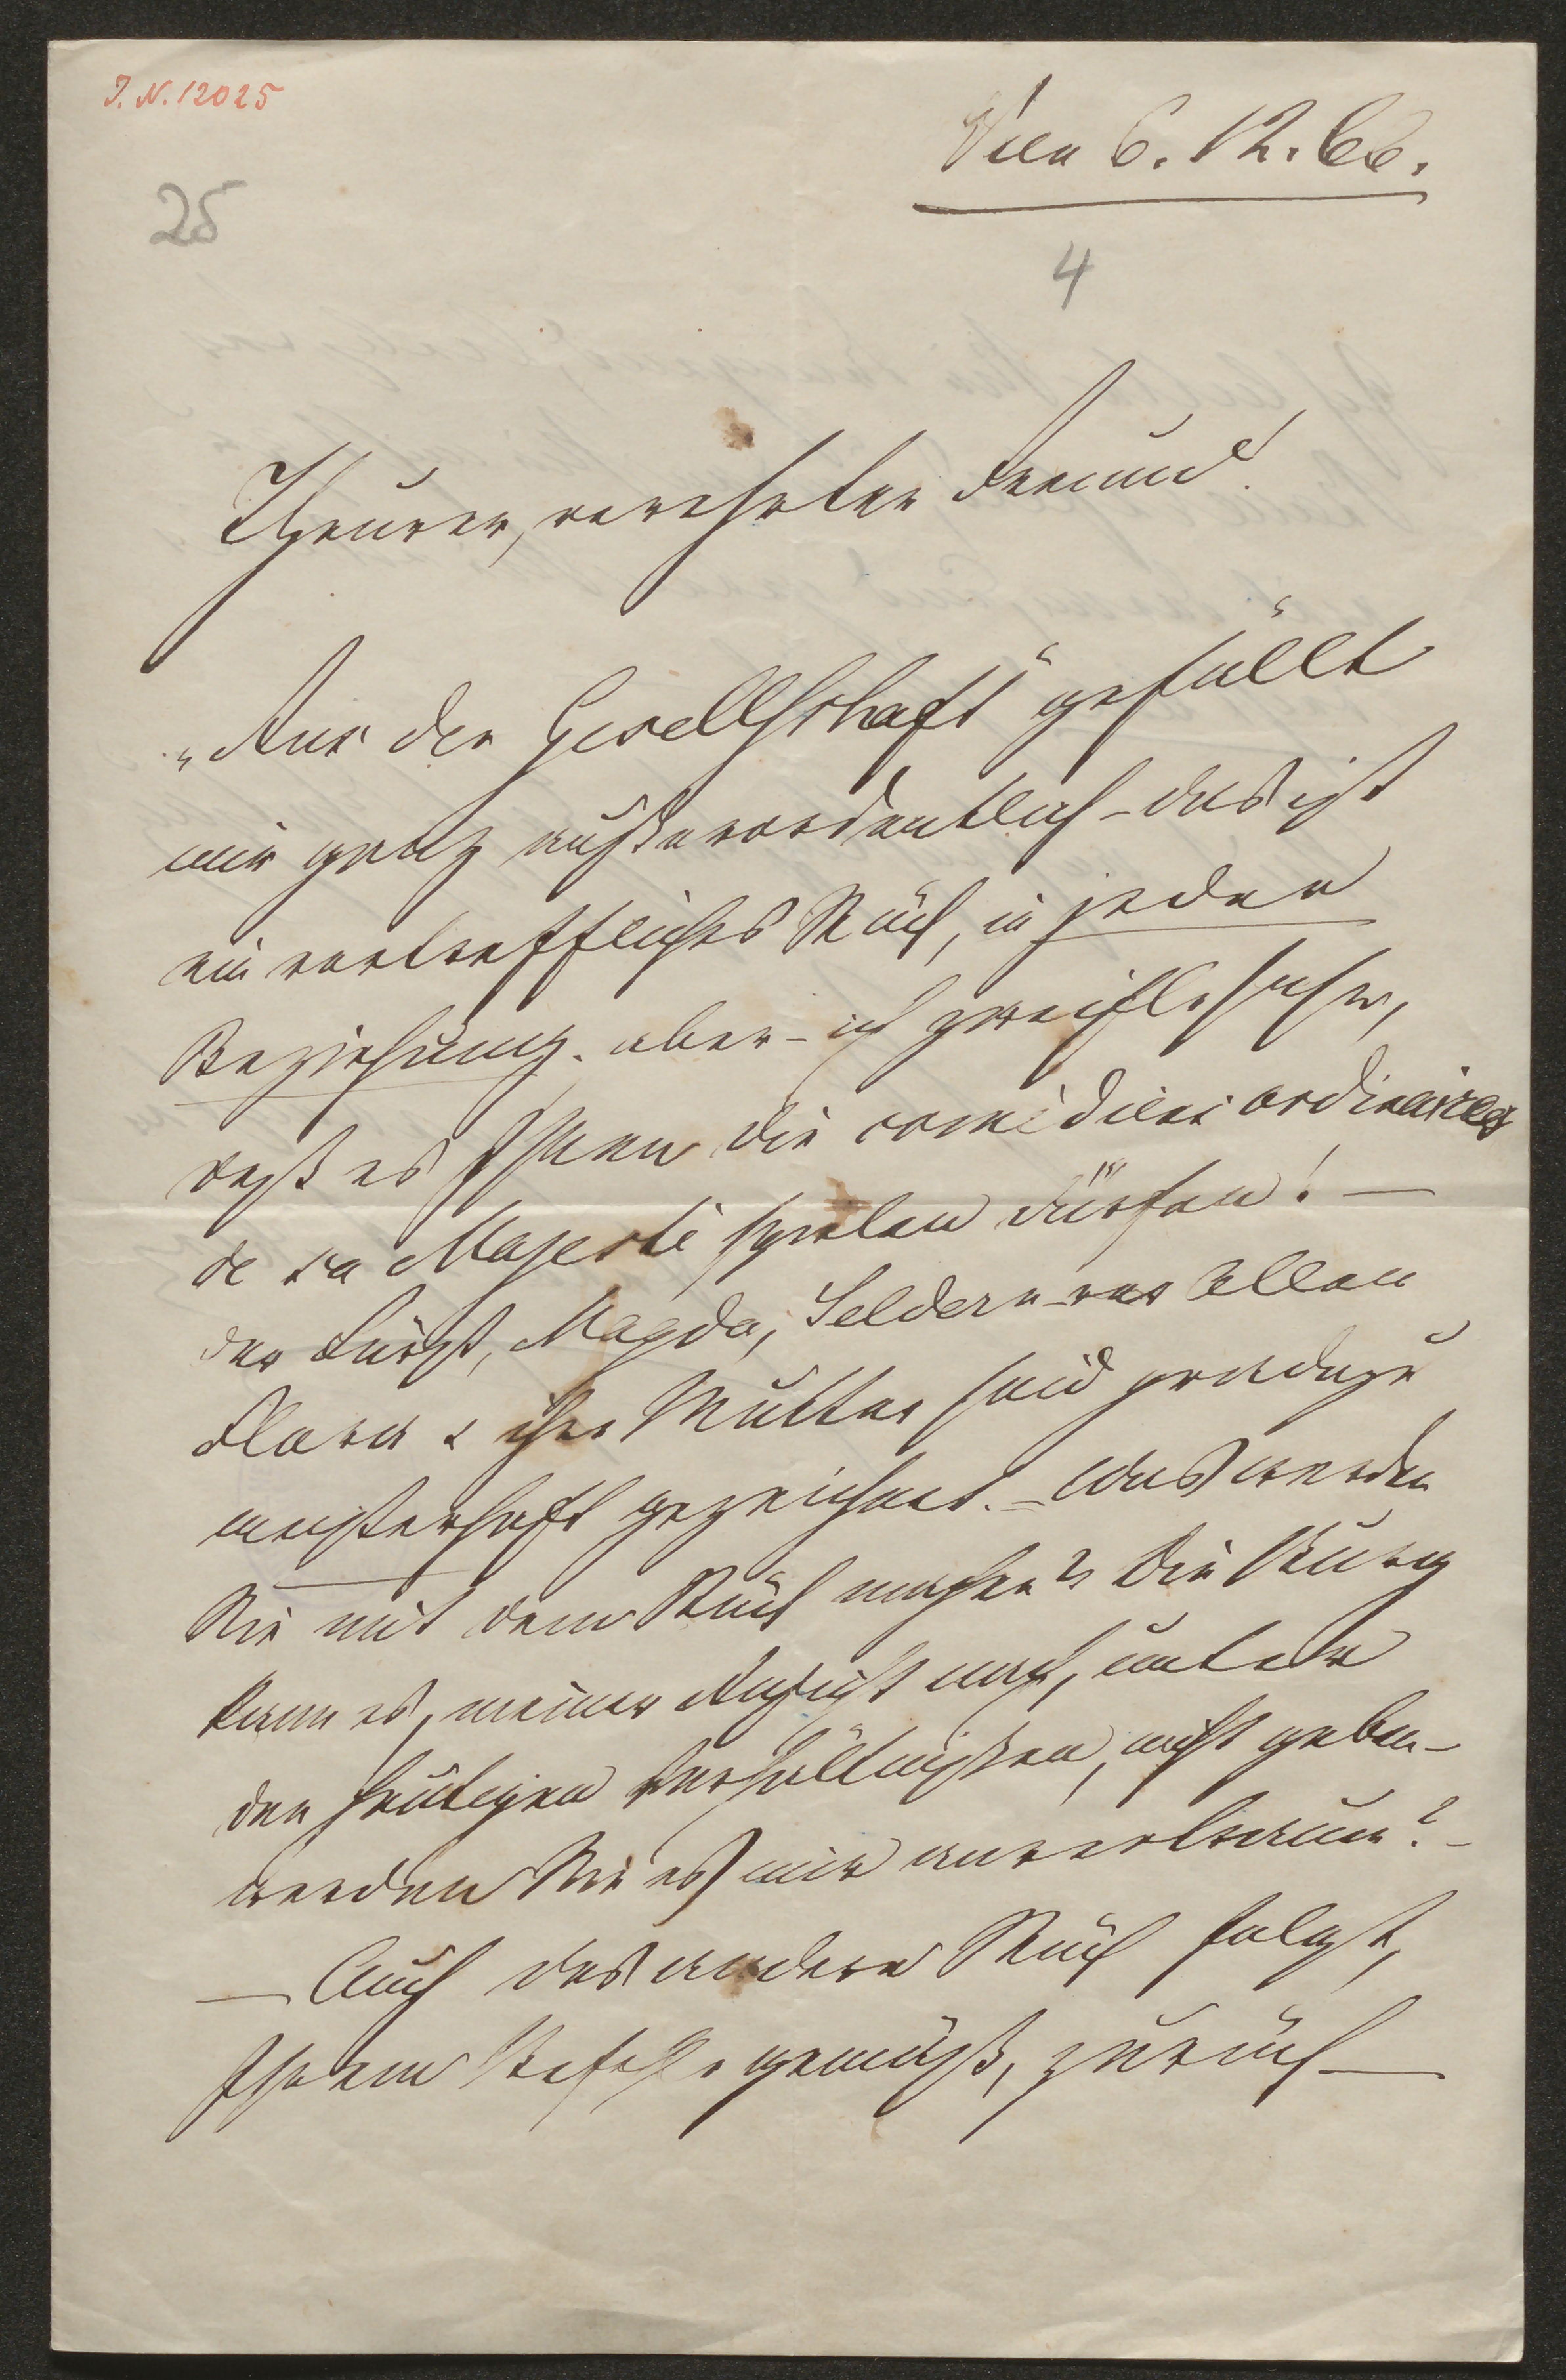 J. N. 12025
Wien 6. 12. 66.
25
4
Theurer, verehrter Freund!
„Aus der Gesellschaft“ gefällt
mir ganz außerordentlich – das ist
ein vortreffliches Stück, in jeder
Beziehung. aber – ich zweifle sehr,
daß es Ihnen die comédiens ordinaires
de sa Majesté spielen dürfen! –
der Fürst, Magda, Feldern vor Allen
Flora & ihre Mutter sind geradezu
meisterhaft gezeichnet. – was werden
Sie mit dem Stück machen? Die Burg
kann es, meiner Ansicht nach, unter
den heutigen Verhältnißen, nicht geben –
werden Sie es mir anvertrauen? –
– Auch das andere Stück folgt,
Ihrem Befehle gemäß, zurück –